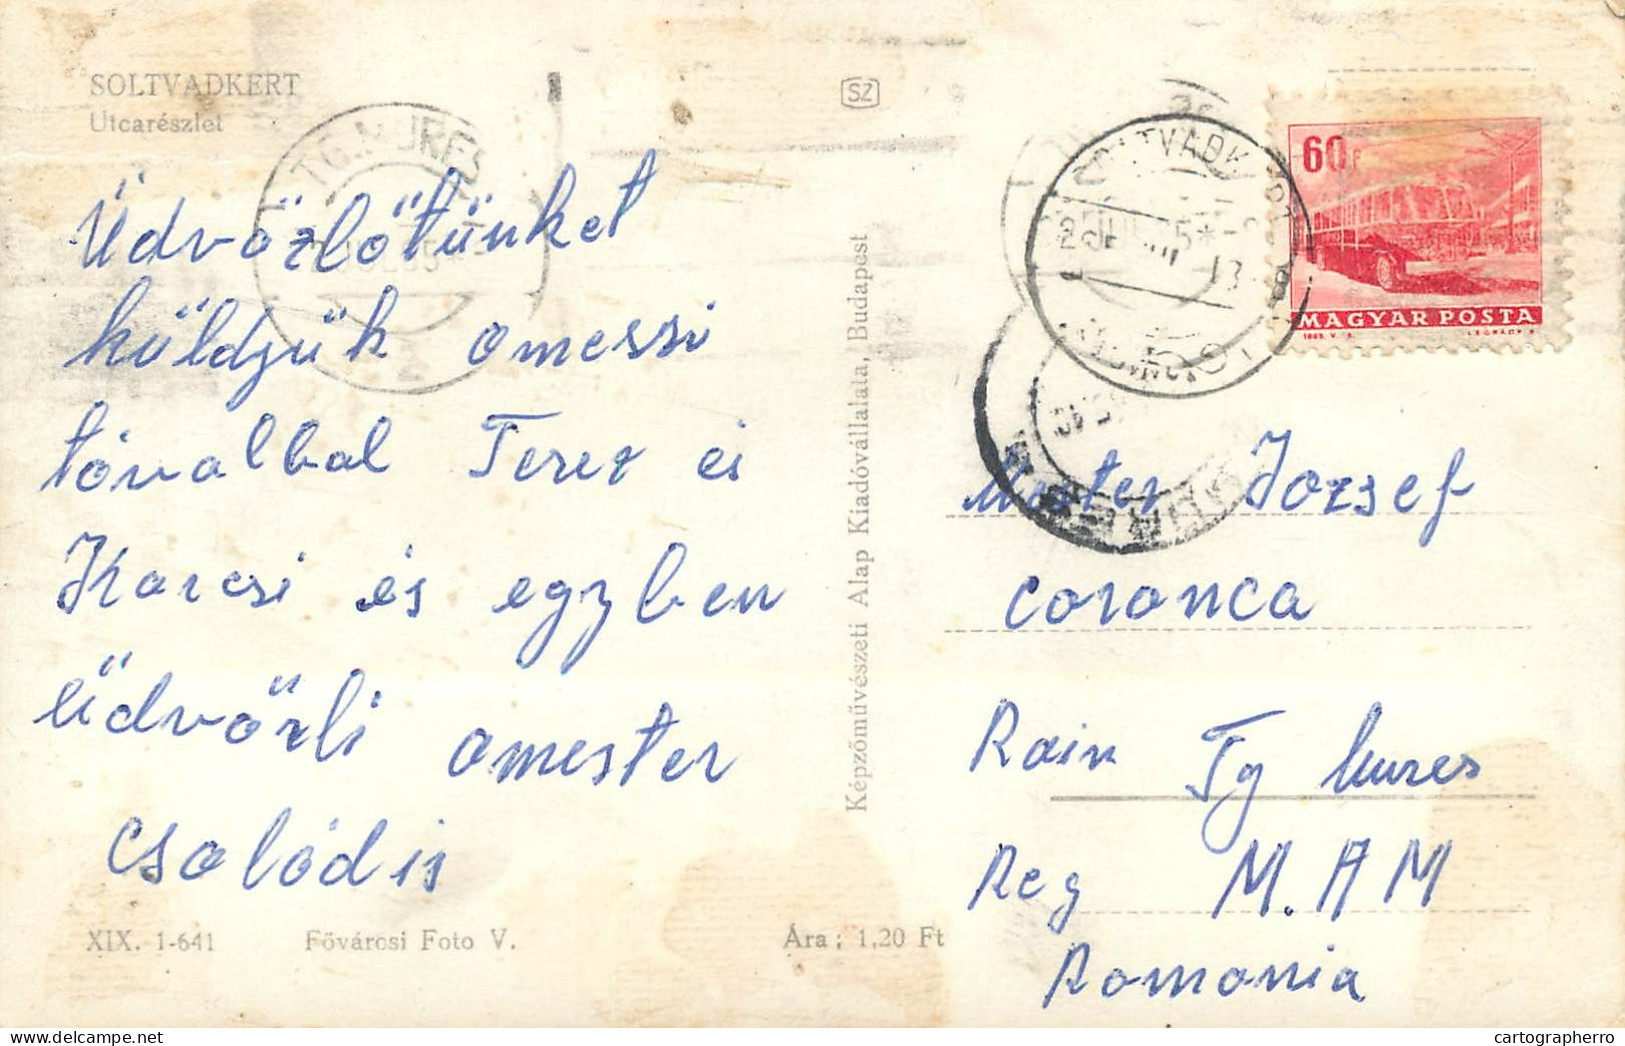 SOLTVADKERT
Utcarészlet
SZ
TG. MURES
60f
MAGYAR POSTA
Üdvözlötünket
küldjük omessi
tóvalbal Terez és
Karcsi és egyben
üdvözli omester
csolódis
Képzőművészeti Alap Kiadóvállalata, Budapest
József
coronca
Rain Tg Mures
Reg M.A M
Romonia
XIX. 1-641 Fővárosi Foto V. Ára: 1,20 Ft
cartographerro